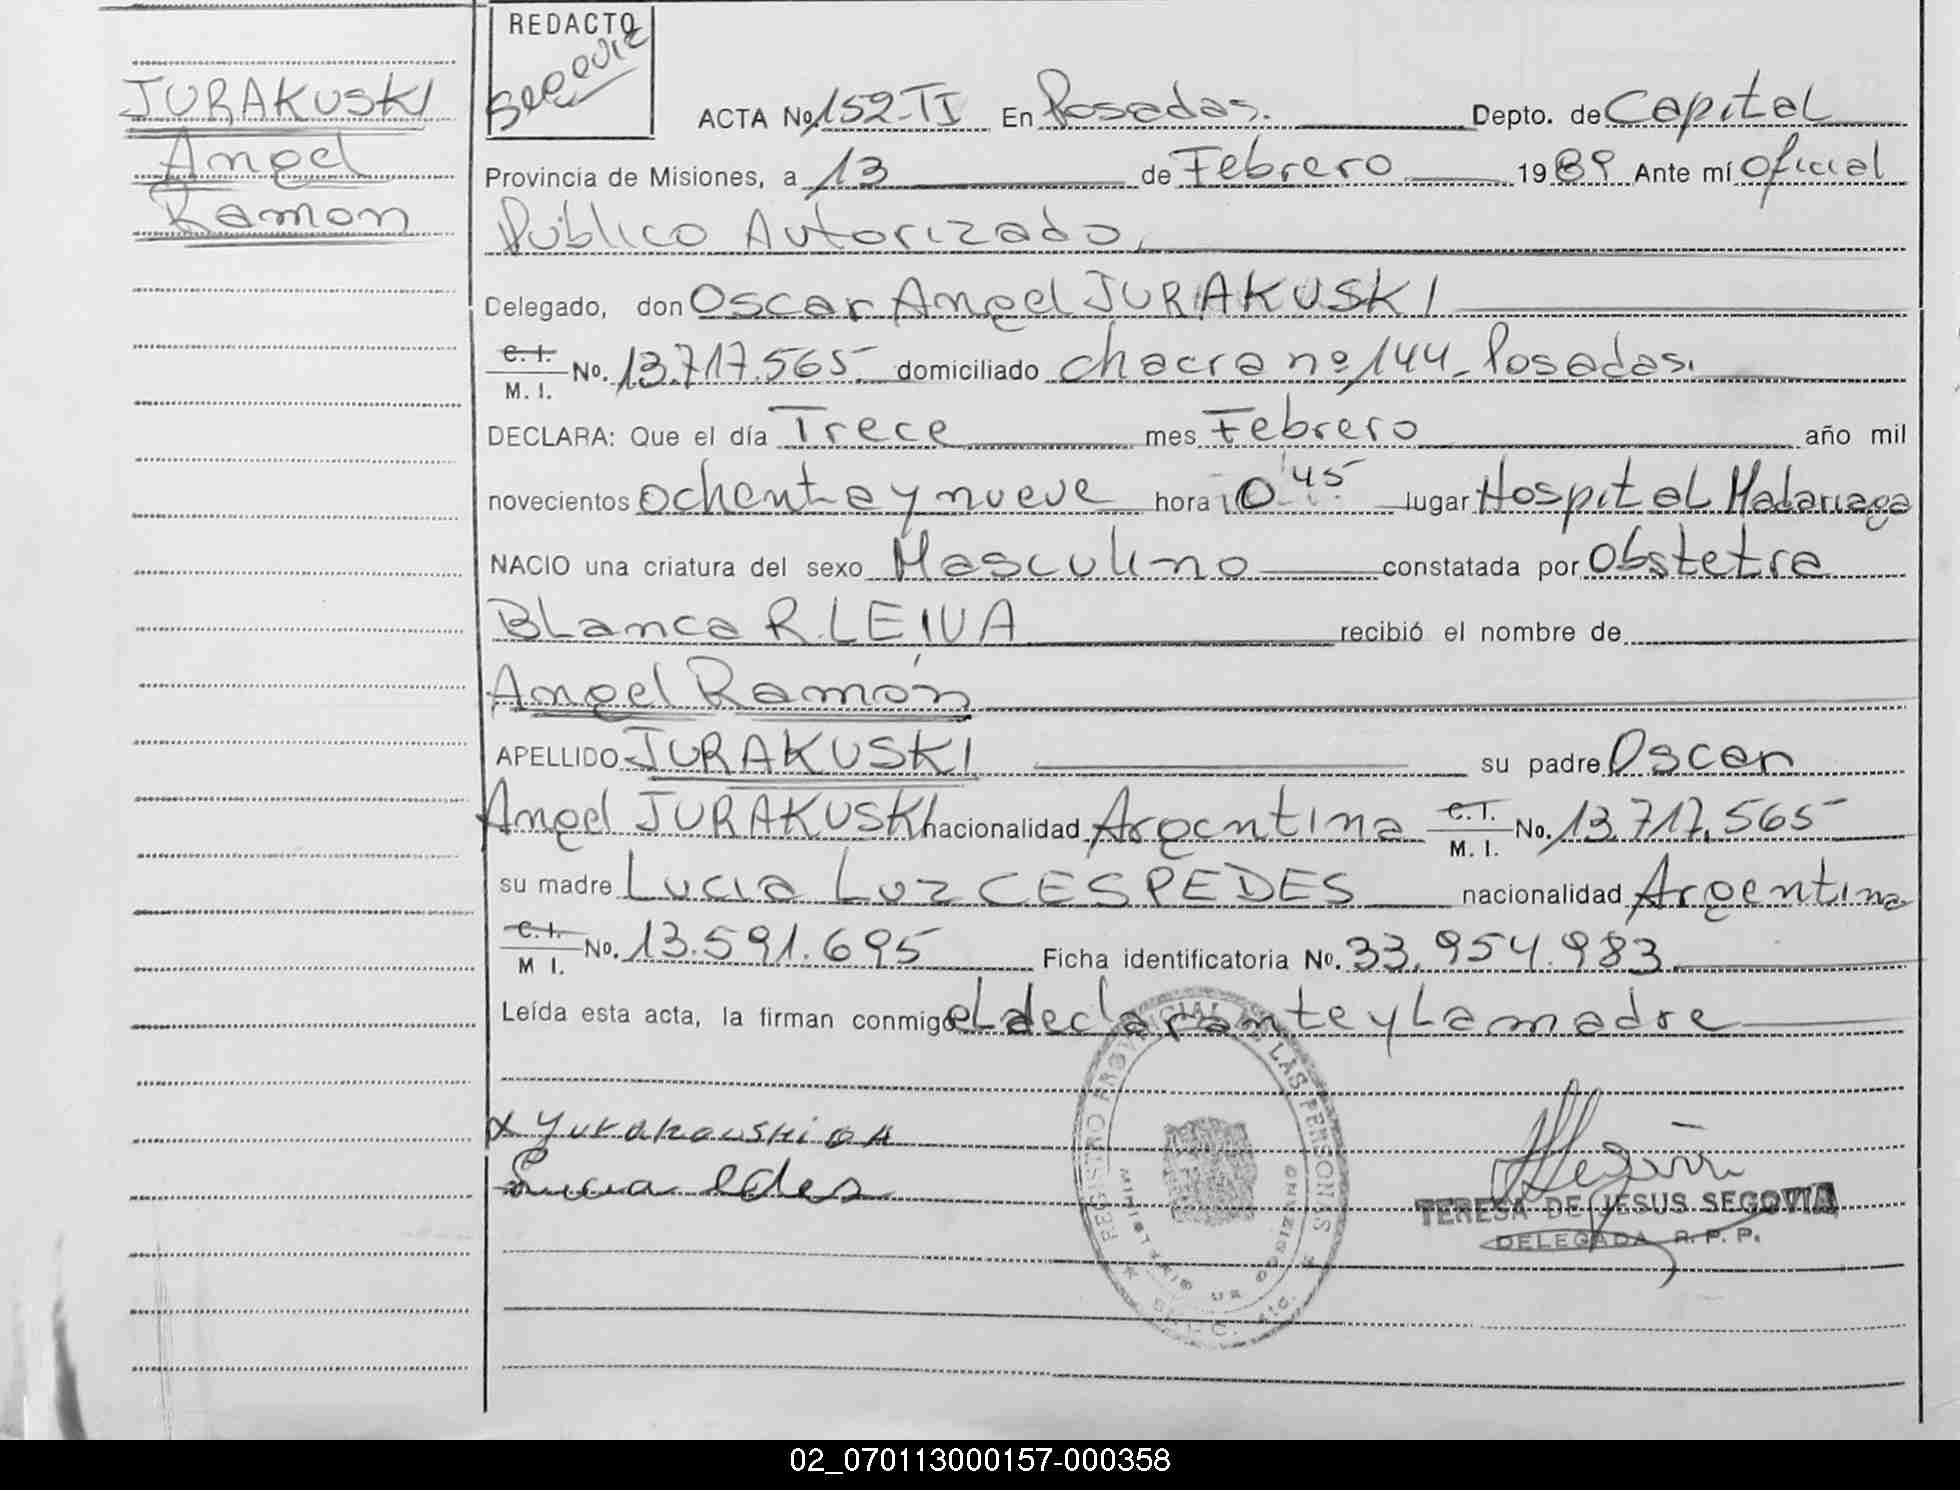 JURAKUSKI
Angel
Ramon
REDACTO
ACTA No. 152-TI En Posadas. Depto. de Capital
Provincia de Misiones, a 13 de Febrero 1989 Ante mí Oficial
Público Autorizado,
Delegado, don Oscar Angel JURAKUSKI
C. I. M. I. No. 13.717.565 domiciliado chacra nº 144_ Posadas.
DECLARA: Que el día Trece mes Febrero año mil
novecientos ochenta y nueve hora 0 45 lugar Hospital Madariaga
NACIO una criatura del sexo Masculino constatada por Obstetra
Blanca R. LEIVA recibió el nombre de
Angel Ramón
APELLIDO JURAKUSKI su padre Oscar
Angel JURAKUSKI nacionalidad Argentina C. I. M. I. No. 13.717.565
su madre Lucia Luz CESPEDES nacionalidad Argentina
C. I. M I. No. 13.591.695 Ficha identificatoria No. 33.954.983
Leída esta acta, la firman conmigo el declarante y La madre
REGISTRO PROVINCIAL DE LAS PERSONAS
x Yurakouski O A
TERESA DE JESUS SEGOVIA
DELEGADA R. P. P.
02_070113000157-000358